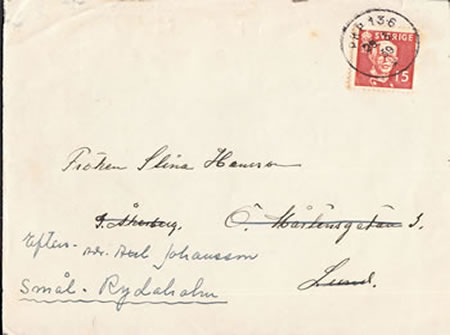 PKP 136
SVERIGE
15
Fröken Stina Hansson
g. Åkerberg. Ö. Mårtensgatan 3.
Efter- adr. Axel Johansson
Lund.
Smål- Rydaholm